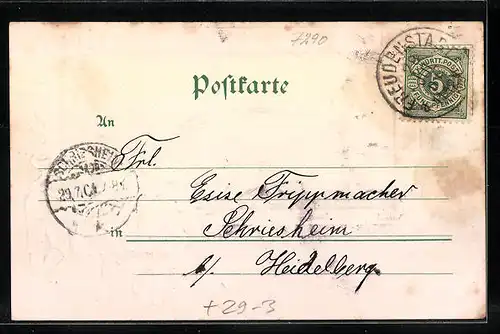 7290
FREUDENSTADT
K.WÜRTT.POST
5
Postkarte
An
Frl.
SCHRIESHEIM
29.7.04
Esise Frippmacher
in Schriesheim
b/ Heidelberg
+29-3